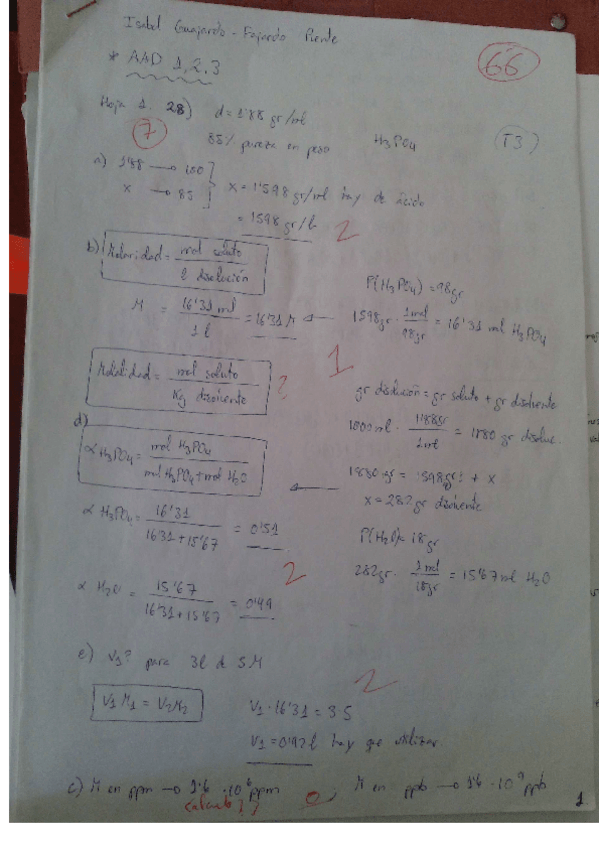 Isabel Guajardo-Fajardo Puente
66
* AAD 1,2,3
Hoja 1. 28) d = 1'88 gr/ml
7
85% pureza en peso H₃PO₄
T3
a) 1'88 → 100
x → 85
x = 1'598 gr/ml hay de ácido
= 1598 gr/l
2
b) Molaridad = mol soluto / l disolución
P(H₃PO₄) = 98gr
M = 16'31 ml / 1 l = 16'31 M ←
1598gr · 1 mol / 98gr = 16'31 ml H₃PO₄
1
Molalidad = mol soluto / Kg disolvente ?
gr disolución = gr soluto + gr disolvente
1000 ml · 1'88gr / 1 ml = 1880 gr disoluc.
d)
∝ H₃PO₄ = mol H₃PO₄ / mol H₃PO₄ + mol H₂O
1880 gr = 1598gr + x
x = 282 gr disolvente
∝ H₃PO₄ = 16'31 / 16'31 + 15'67 = 0'51
P(H₂O) = 18gr
282gr · 1 mol / 18gr = 15'67 ml H₂O
2
∝ H₂O = 15'67 / 16'31 + 15'67 = 0'49
e) V₁? para 3l de 5M
2
V₁ M₁ = V₂ M₂
V₁ · 16'31 = 3·5
V₁ = 0'92 l hay que utilizar
c) M en ppm → 1'6 · 10⁶ ppm 0, M en ppb → 1'6 · 10⁹ ppb
1